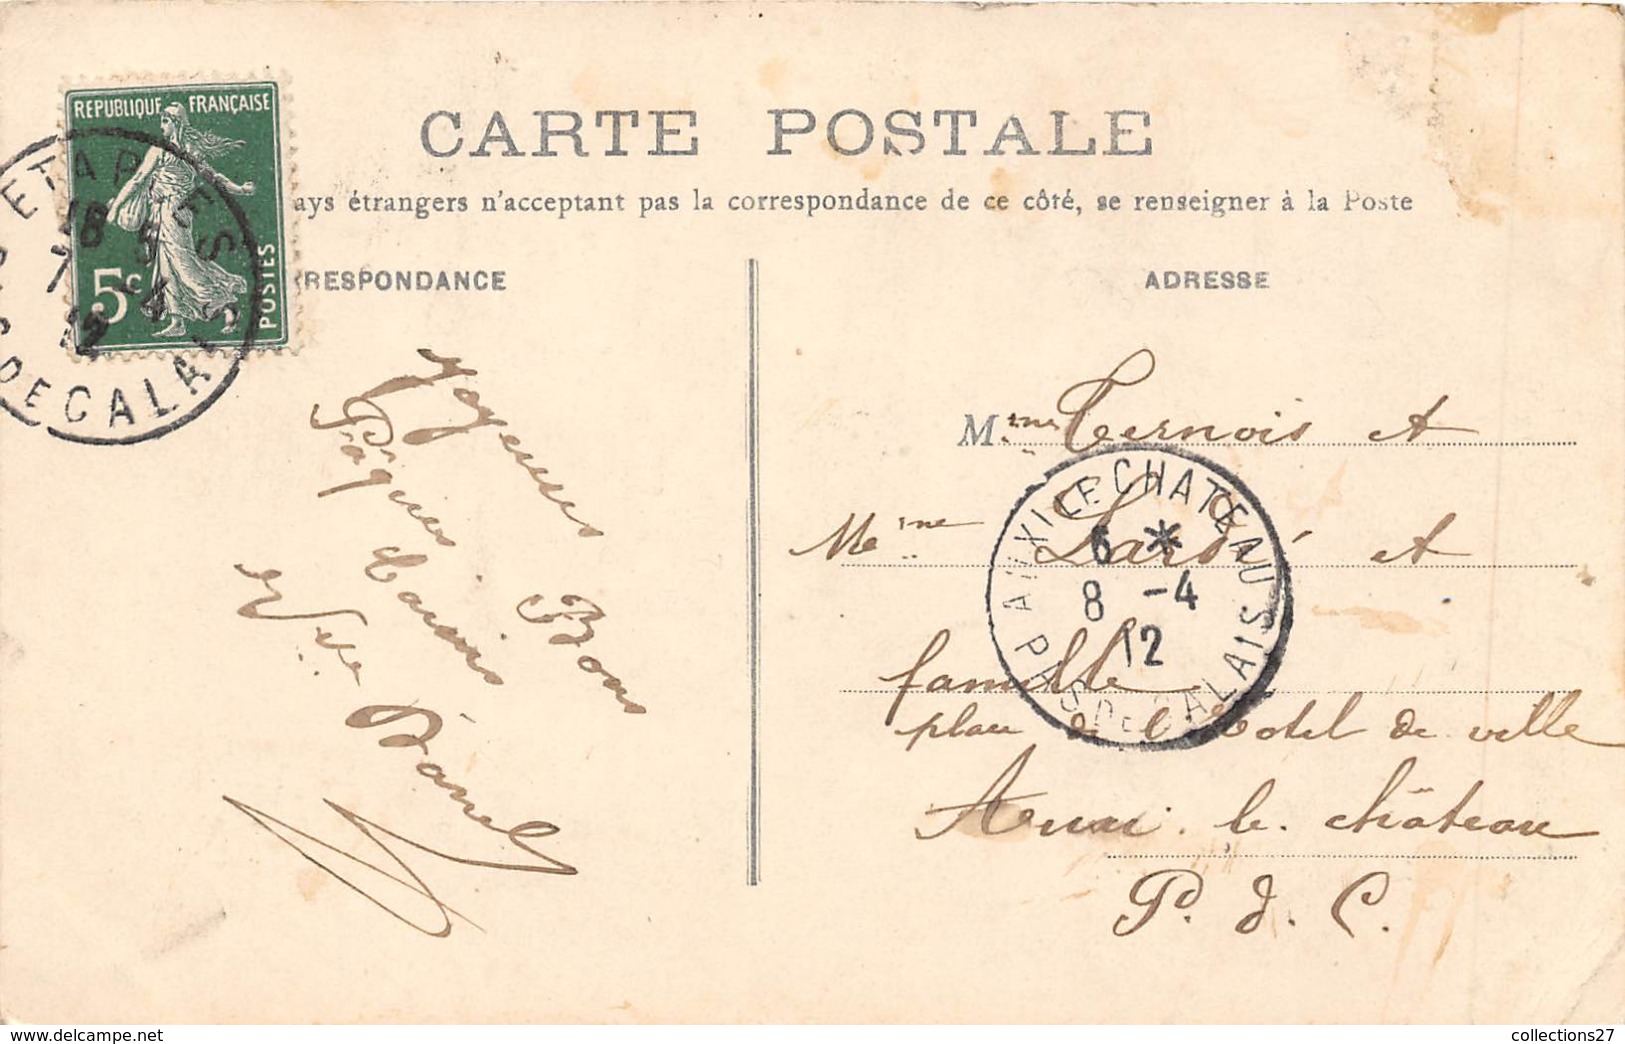 CARTE POSTALE
ays étrangers n'acceptant pas la correspondance de ce côté, se renseigner à la Poste
RESPONDANCE
ADRESSE
REPUBLIQUE FRANÇAISE
5c
POSTES
ETAPLES
18 5
7 -4
12
DE CALAIS
Joyeuses
Pâques Bons
baisers
Vve Danel
Mme Ternois et
Mme Lardé et
famille
place de l'hotel de ville
Auxi. le. château
P. d. C.
AUXI LE CHATEAU
6 *
8 -4
12
PAS DE CALAIS
collections27